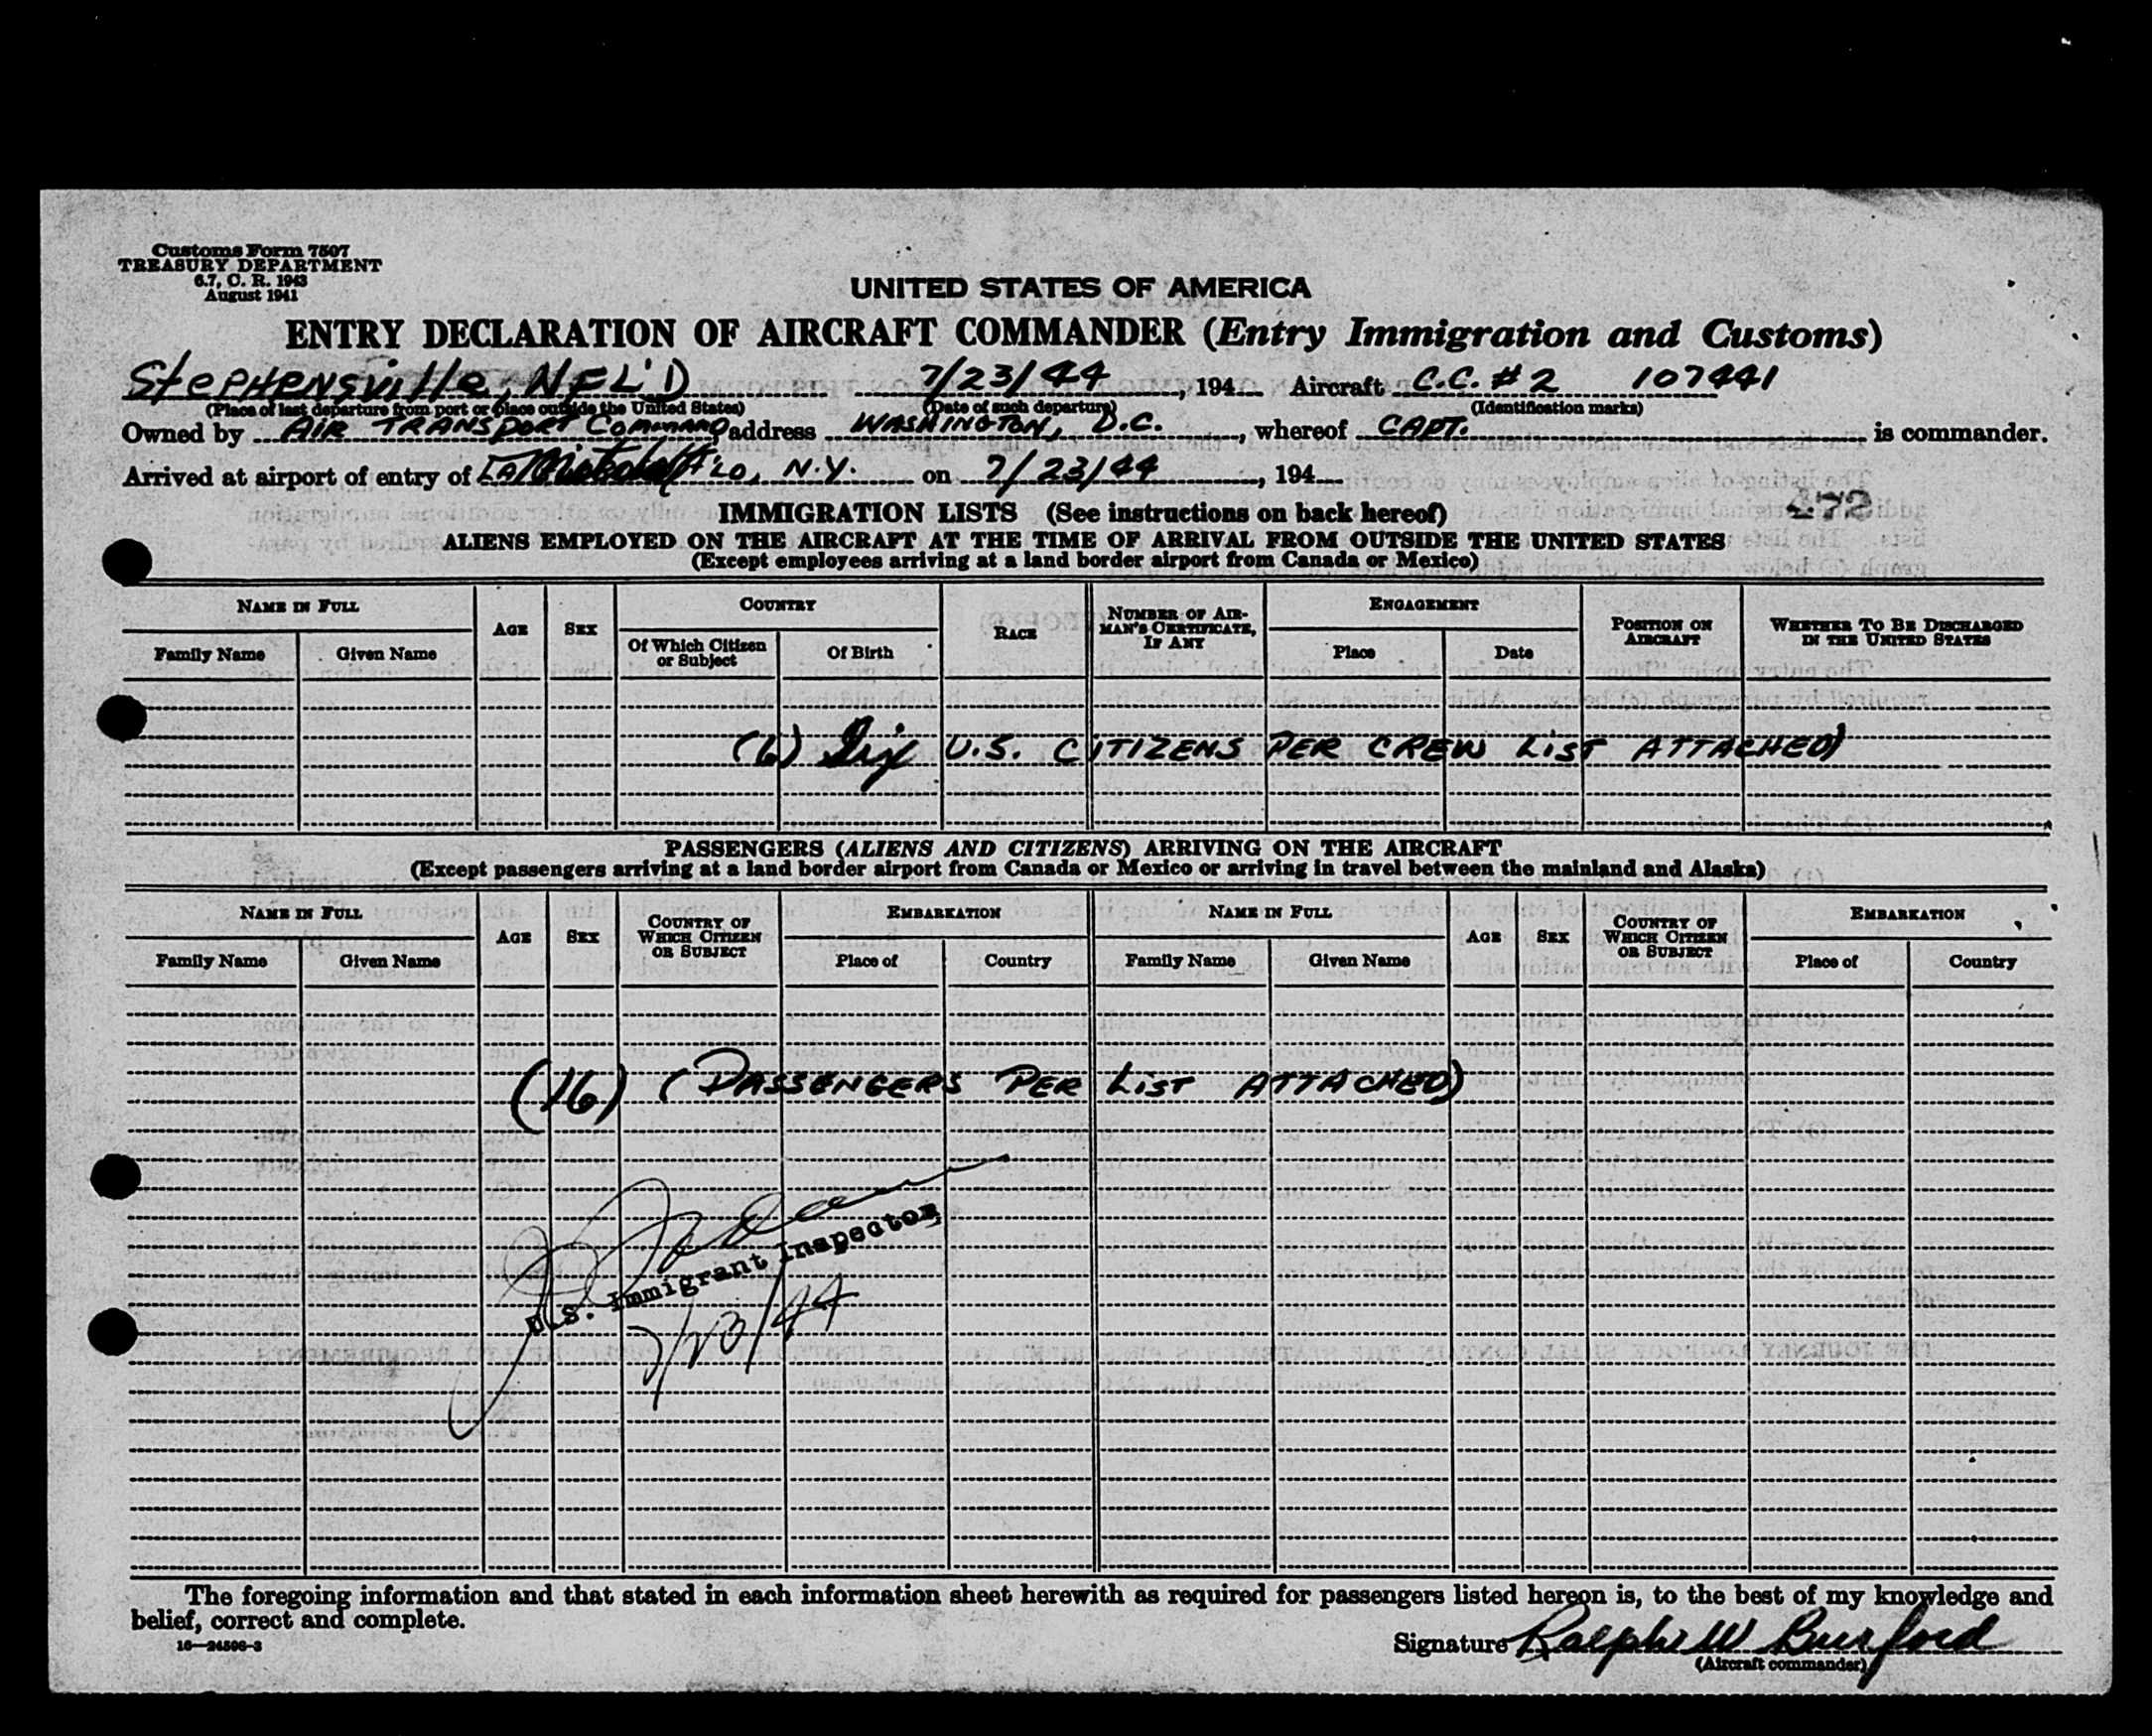 Customs Form 7507
TREASURY DEPARTMENT
6.7, C. R. 1943
August 1941
UNITED STATES OF AMERICA
ENTRY DECLARATION OF AIRCRAFT COMMANDER (Entry Immigration and Customs)
StePHensville, NFL'D 7/23/44, 194 Aircraft C.C. #2 107441
(Place of last departure from port or place outside the United States) (Date of such departure) (Identification marks)
Owned by AIR TRANSPORT Command address WASHINGTON, D.C., whereof CAPT. is commander.
Arrived at airport of entry of N.Y. on 7/23/44, 194
472
IMMIGRATION LISTS (See instructions on back hereof)
ALIENS EMPLOYED ON THE AIRCRAFT AT THE TIME OF ARRIVAL FROM OUTSIDE THE UNITED STATES
(Except employees arriving at a land border airport from Canada or Mexico)
NAME IN FULL AGE SEX COUNTRY RACE NUMBER OF AIRMAN'S CERTIFICATE, IF ANY ENGAGEMENT POSITION ON AIRCRAFT WHETHER TO BE DISCHARGED IN THE UNITED STATES
Family Name Given Name Of Which Citizen or Subject Of Birth Place Date
(6) Six U.S. CITIZENS PER CREW LIST ATTACHED)
PASSENGERS (ALIENS AND CITIZENS) ARRIVING ON THE AIRCRAFT
(Except passengers arriving at a land border airport from Canada or Mexico or arriving in travel between the mainland and Alaska)
NAME IN FULL AGE SEX COUNTRY OF WHICH CITIZEN OR SUBJECT EMBARKATION NAME IN FULL AGE SEX COUNTRY OF WHICH CITIZEN OR SUBJECT EMBARKATION
Family Name Given Name Place of Country Family Name Given Name Place of Country
(16) (PASSENGERS PER LIST ATTACHED)
U.S. Immigrant Inspector
7/23/44
The foregoing information and that stated in each information sheet herewith as required for passengers listed hereon is, to the best of my knowledge and
belief, correct and complete.
16—24506-3
Signature Ralph W Burford
(Aircraft commander)